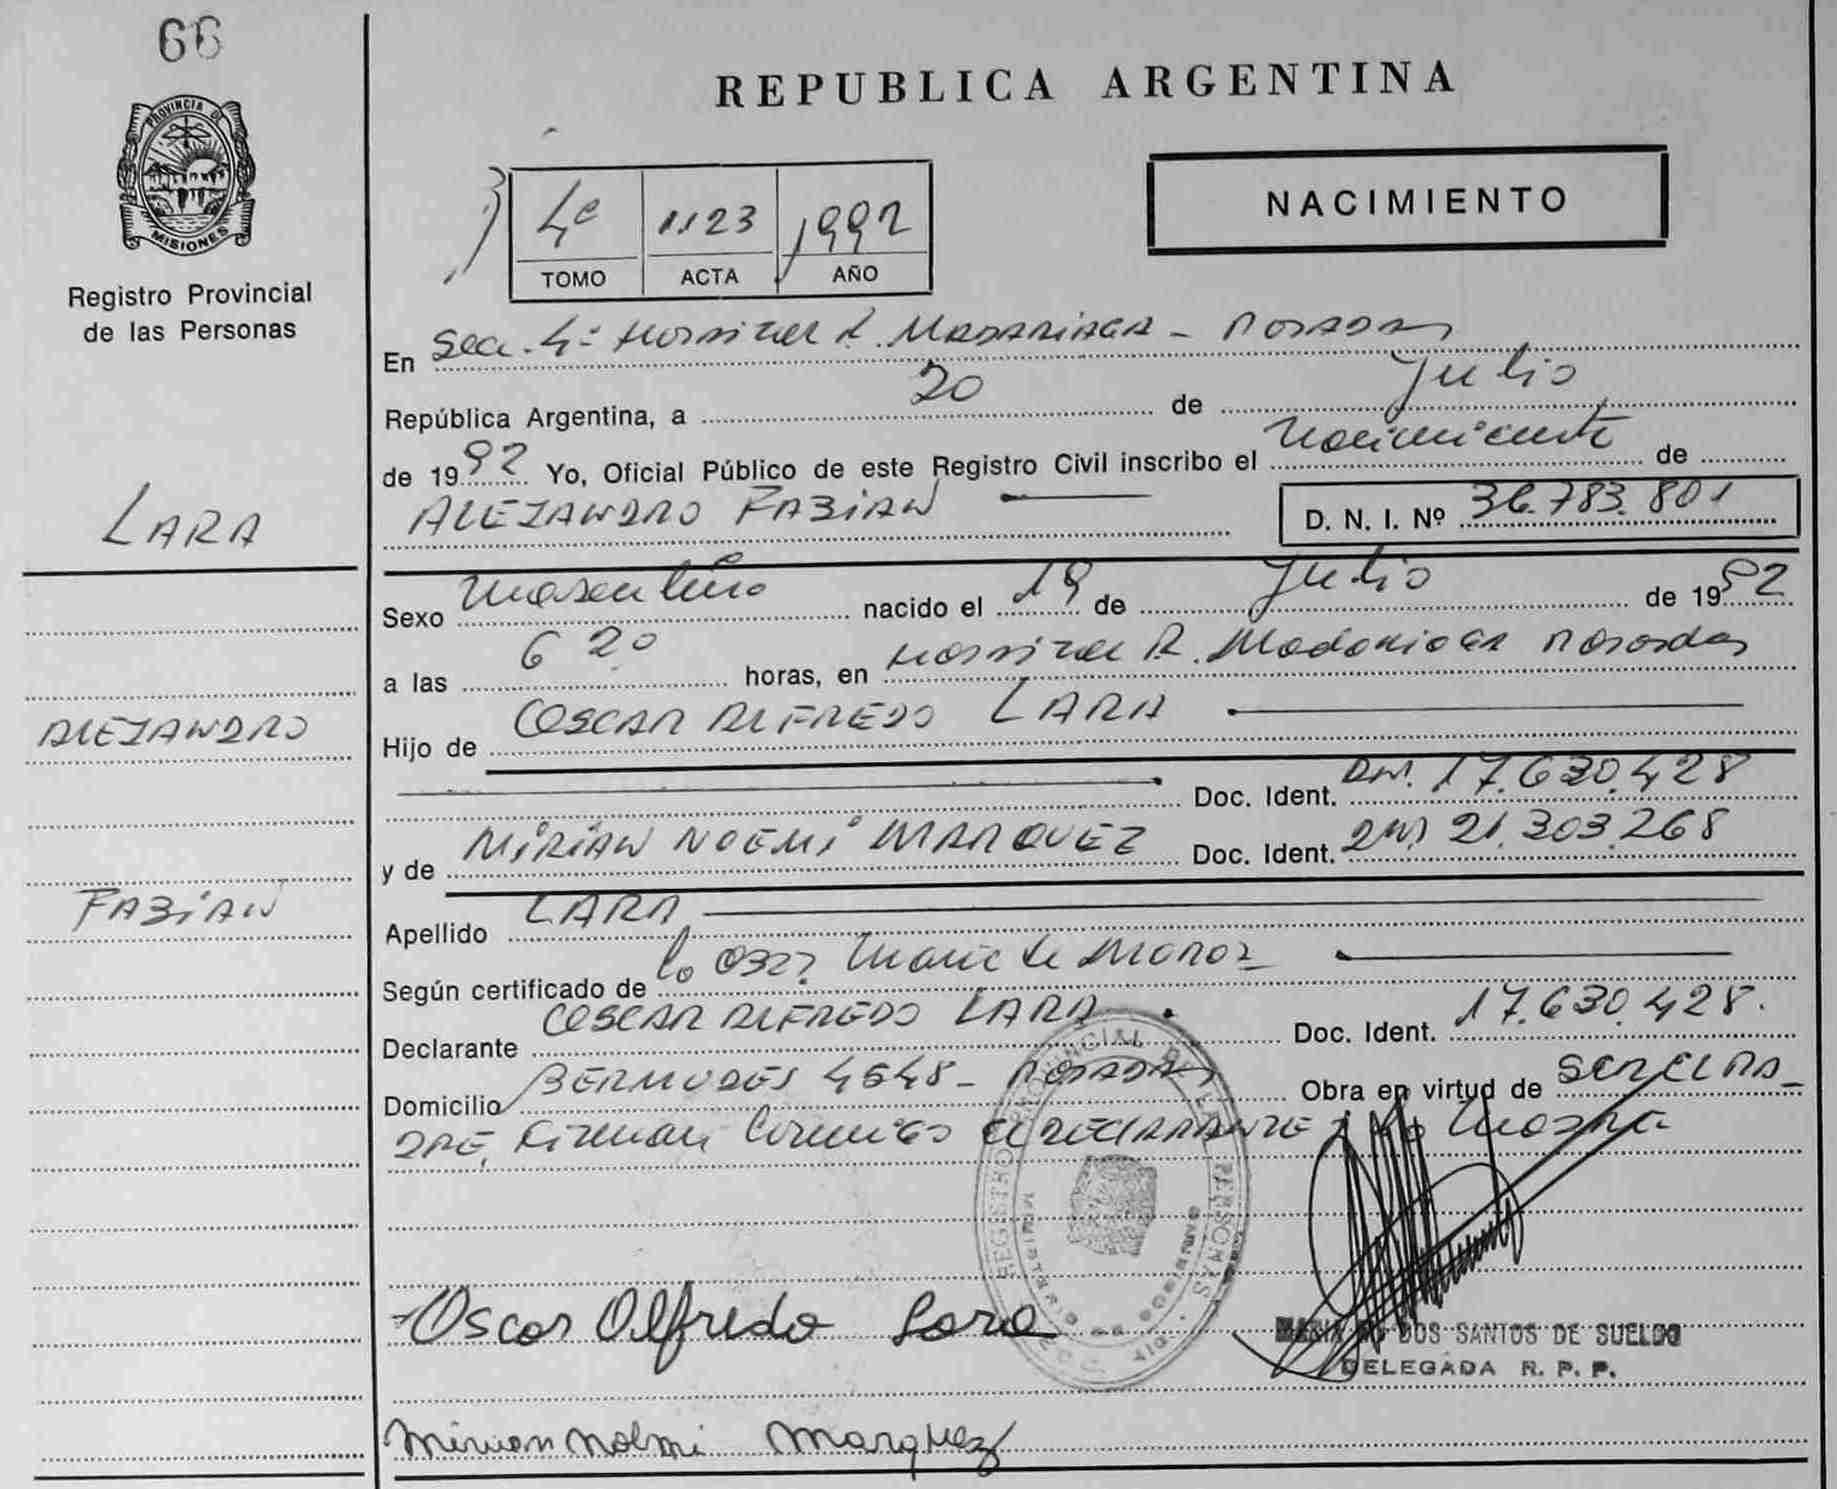 66
PROVINCIA DE
MISIONES
Registro Provincial
de las Personas
LARA
ALEJANDRO
FABIAN
REPUBLICA ARGENTINA
4º 1123 1992
TOMO ACTA AÑO
NACIMIENTO
En Secc. 4º Hospital R. MADARIAGA - POSADAS
República Argentina, a 20 de Julio
de 1992 Yo, Oficial Público de este Registro Civil inscribo el Nacimiento de
ALEJANDRO FABIAN D. N. I. Nº 36.783.801
Sexo Masculino nacido el 19 de Julio de 1992
a las 6 20 horas, en Hospital R. Madariaga Posadas
Hijo de OSCAR ALFREDO LARA
Doc. Ident. DNI. 17.630.428
y de MIRIAN NOEMI MARQUEZ Doc. Ident. DNI 21.303.268
Apellido LARA
Según certificado de
Declarante OSCAR ALFREDO LARA Doc. Ident. 17.630.428.
Domicilio BERMUDES 4648 - POSADAS Obra en virtud de SER EL PA-
DRE, Firman Conmigo el DECLARANTE y la
REGISTRO PROVINCIAL DE LAS PERSONAS
MINISTERIO DE GOBIERNO
Oscar Alfredo Lara
DOS SANTOS DE SUELDO
DELEGADA R. P. P.
Mirian Noemi Marquez